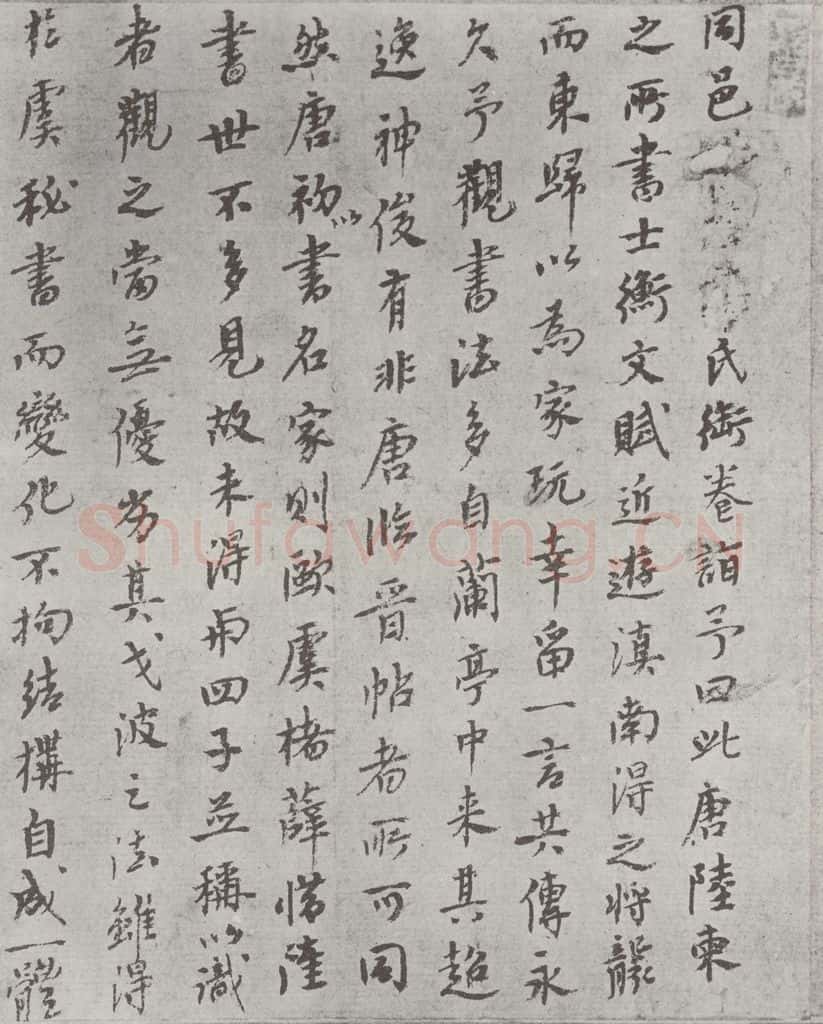 同邑氏卷詣予曰此唐陸柬
之所書士衡文賦近遊滇南得之將襲
而東歸以為家玩幸留一言共傳永
久予觀書法多自蘭亭中来其超
逸神俊有非唐臨晉帖者所可同
然唐初以書名家則歐虞褚薛惜陸
書世不多見故未得與四子並稱以識
者觀之當無優劣其戈波之法雖得
於虞秘書而變化不拘結構自成一體
Shufawang.CN